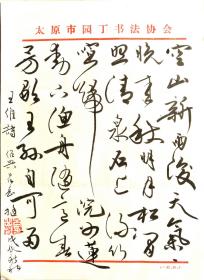 太原市园丁书法协会
空山新雨後天氣
晚来秋明月松间
照清泉石上流竹
喧歸浣女蓮
動下渔舟随意春
芳歇王孫自可留
王維詩